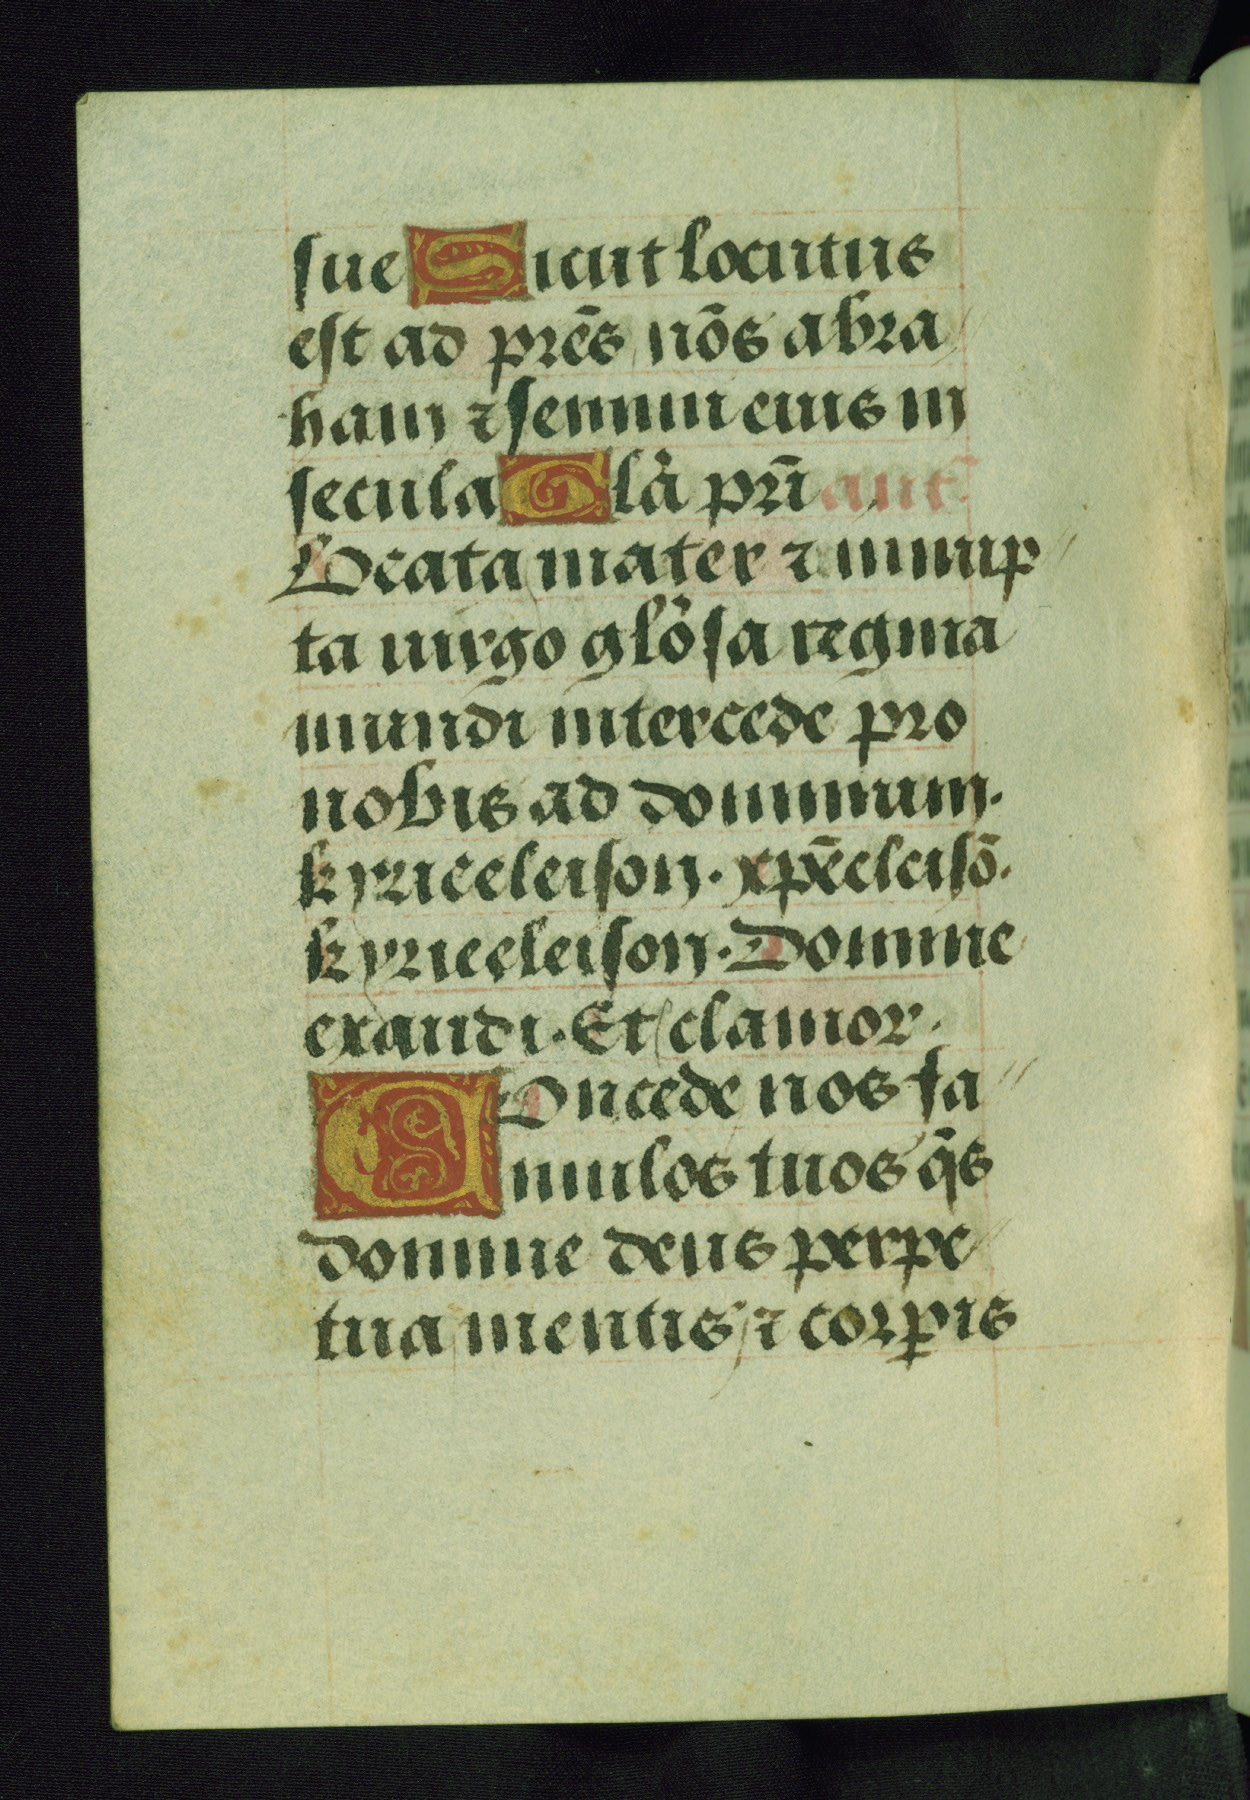 sue Sicut locutus
est ad pr̄es nōs abra
ham ⁊ semini eius in
secula Glā pr̄i ant̄
Beata mater ⁊ innup
ta uirgo glōsa regina
mundi intercede pro
nobis ad dominum.
kyrieeleison. xp̄eeleisō.
kyrieeleison. Domine
exaudi. Et clamor.
COncede nos fa
mulos tuos q̄s
domine deus perpe
tua mentis ⁊ corpis